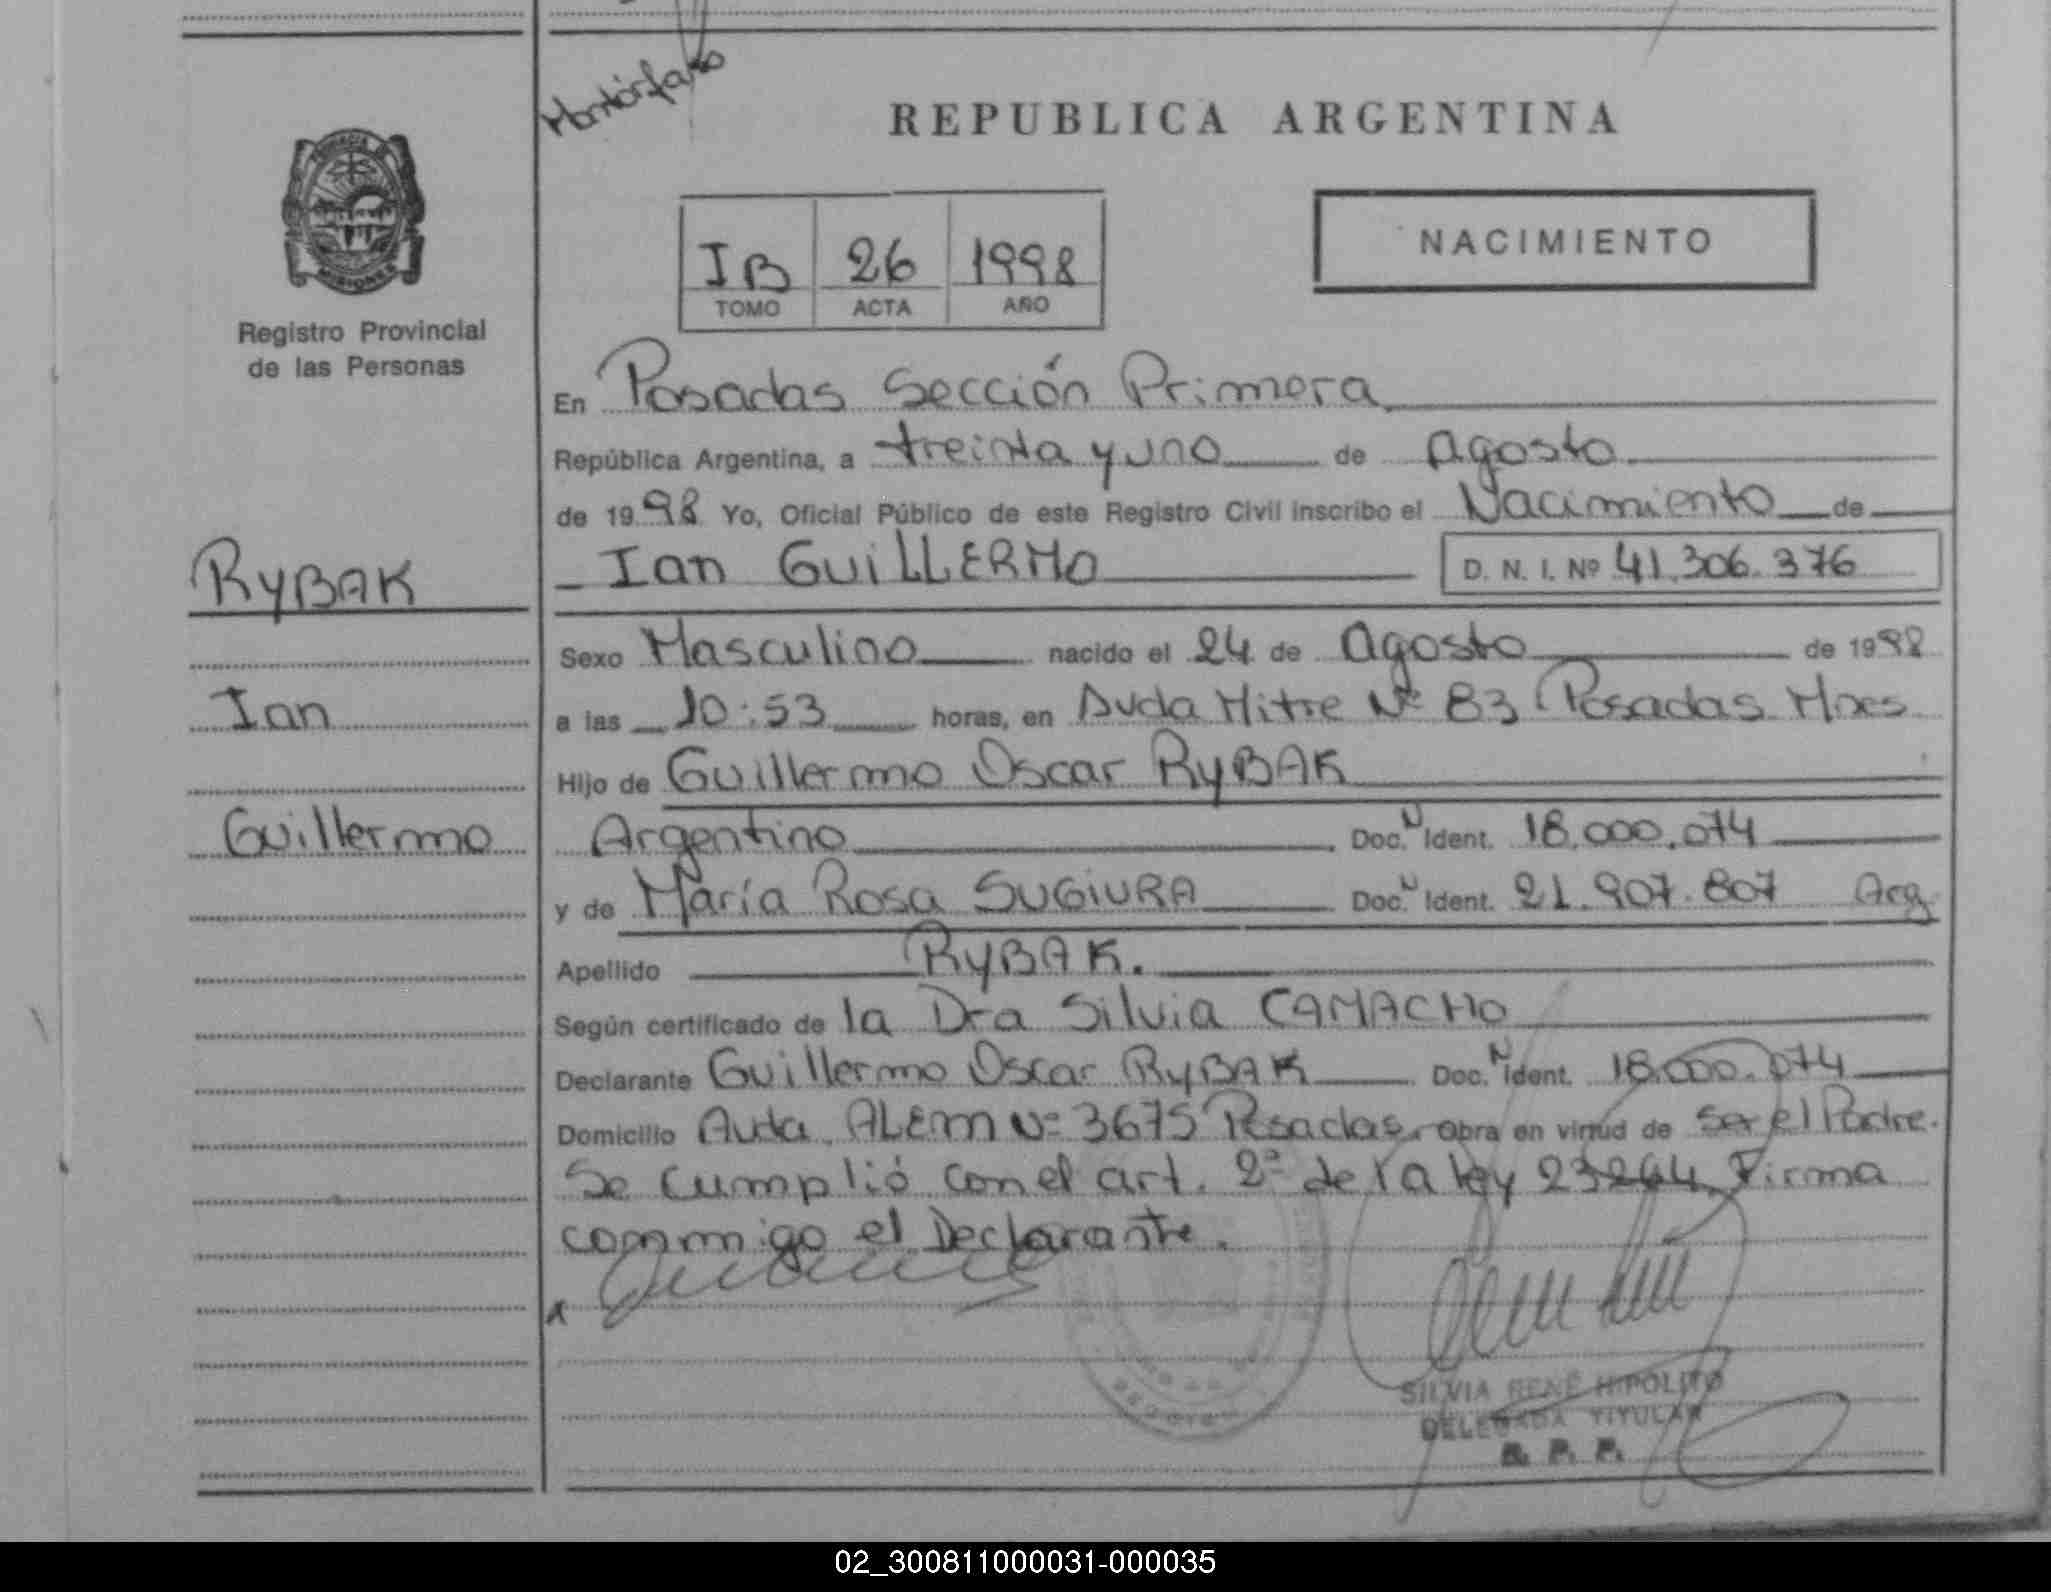 REPUBLICA ARGENTINA
PROVINCIA DE
MISIONES
Registro Provincial
de las Personas
IB 26 1998
TOMO ACTA AÑO
NACIMIENTO
En Posadas Sección Primera
República Argentina, a treinta y uno de Agosto
de 1998 Yo, Oficial Público de este Registro Civil inscribo el Nacimiento de
RYBAK
Ian GUILLERMO D. N. I. Nº 41.306.376
Sexo Masculino nacido el 24 de Agosto de 1998
Ian
a las 10:53 horas, en Avda Mitre Nº 83 Posadas Mnes
Hijo de Guillermo Oscar RYBAK
Guillermo
Argentino Doc. N Ident. 18.000.074
y de María Rosa SUGIURA Doc. N Ident. 21.907.807 Arg.
Apellido RYBAK.
Según certificado de la Dra Silvia CAMACHO
Declarante Guillermo Oscar RYBAK Doc. N Ident. 18.000.074
Domicilio Avda. ALEM Nº 3675 Posadas. obra en virtud de ser el Padre.
Se cumplió con el art. 2º de la ley 23264. Firma
conmigo el Declarante.
x
SILVIA RENÉ HIPOLITO
DELEGADA TITULAR
R. P. P.
02_300811000031-000035